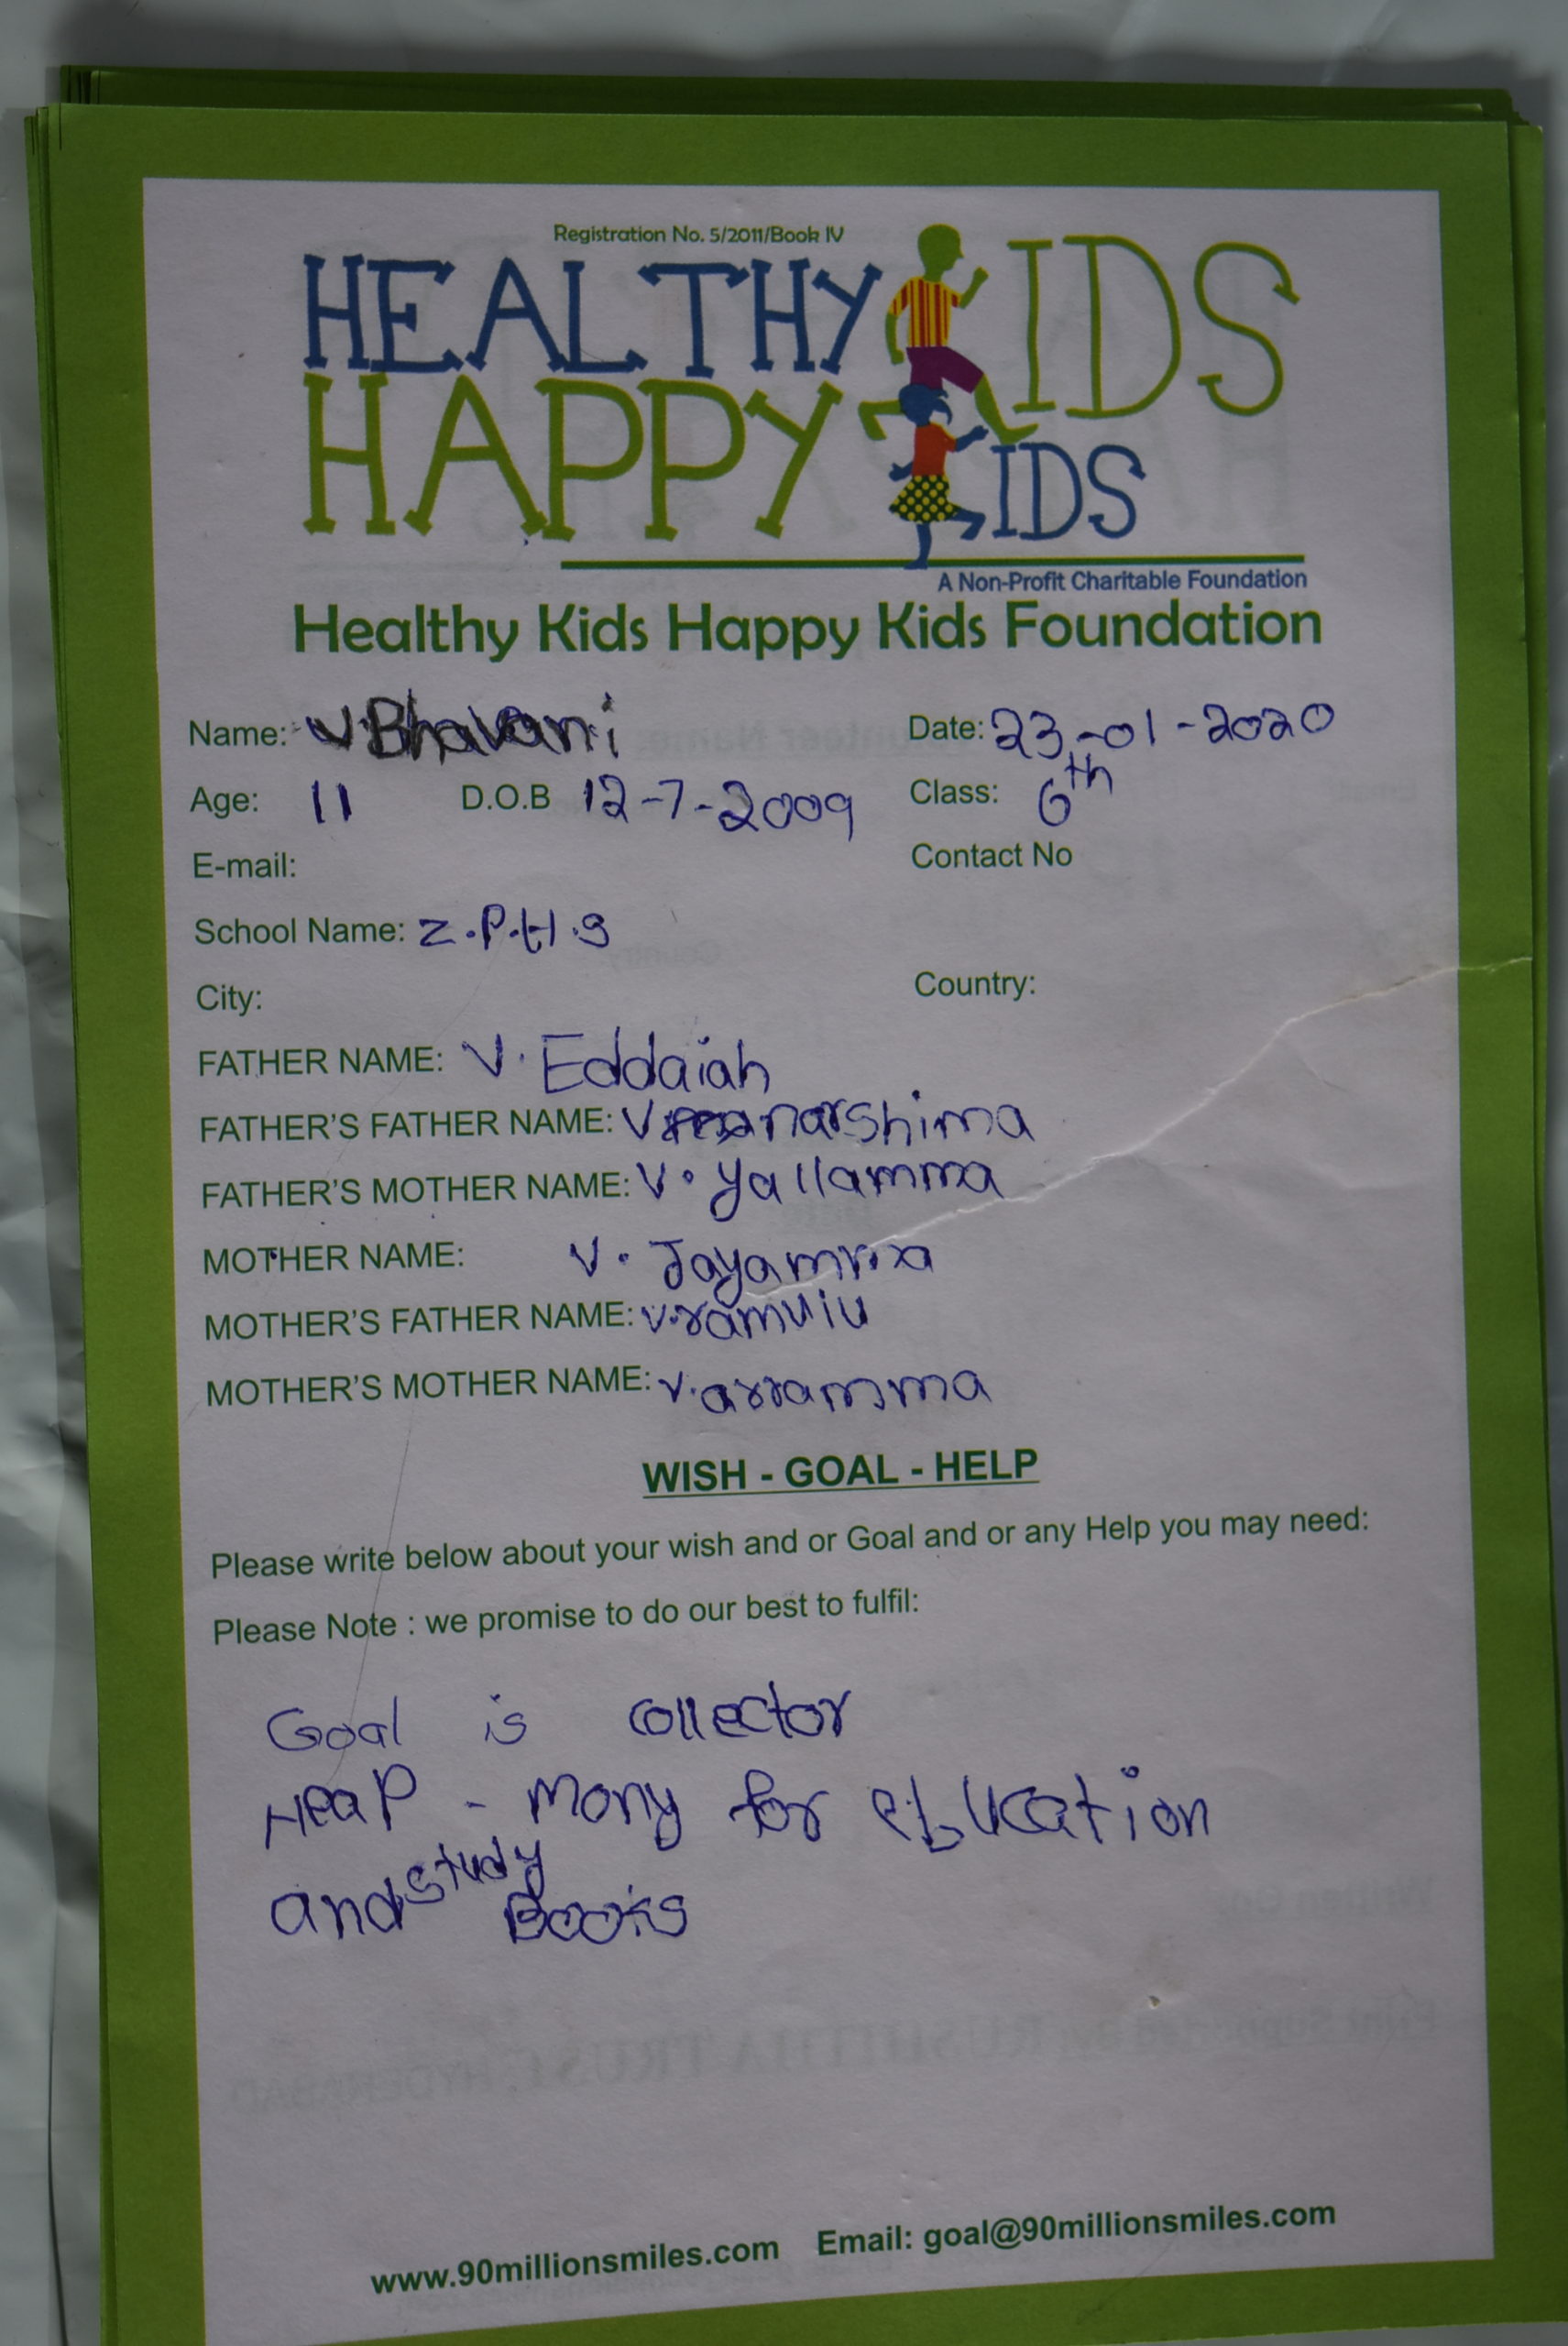 Registration No. 5/2011/Book IV
HEALTHY KIDS
HAPPY KIDS
A Non-Profit Charitable Foundation
Healthy Kids Happy Kids Foundation
Name: V Bhavani Date: 23-01-2020
Age: 11 D.O.B 12-7-2009 Class: 6th
E-mail: Contact No
School Name: Z.P.H.S
City: Country:
FATHER NAME: V. Eddaiah
FATHER'S FATHER NAME: V narshima
FATHER'S MOTHER NAME: V. yallamma
MOTHER NAME: V. Jayamma
MOTHER'S FATHER NAME: V.ramulu
MOTHER'S MOTHER NAME: V.arramma
WISH - GOAL - HELP
Please write below about your wish and or Goal and or any Help you may need:
Please Note : we promise to do our best to fulfil:
Goal is collector
Heap - mony for education
and study Books
www.90millionsmiles.com Email: goal@90millionsmiles.com